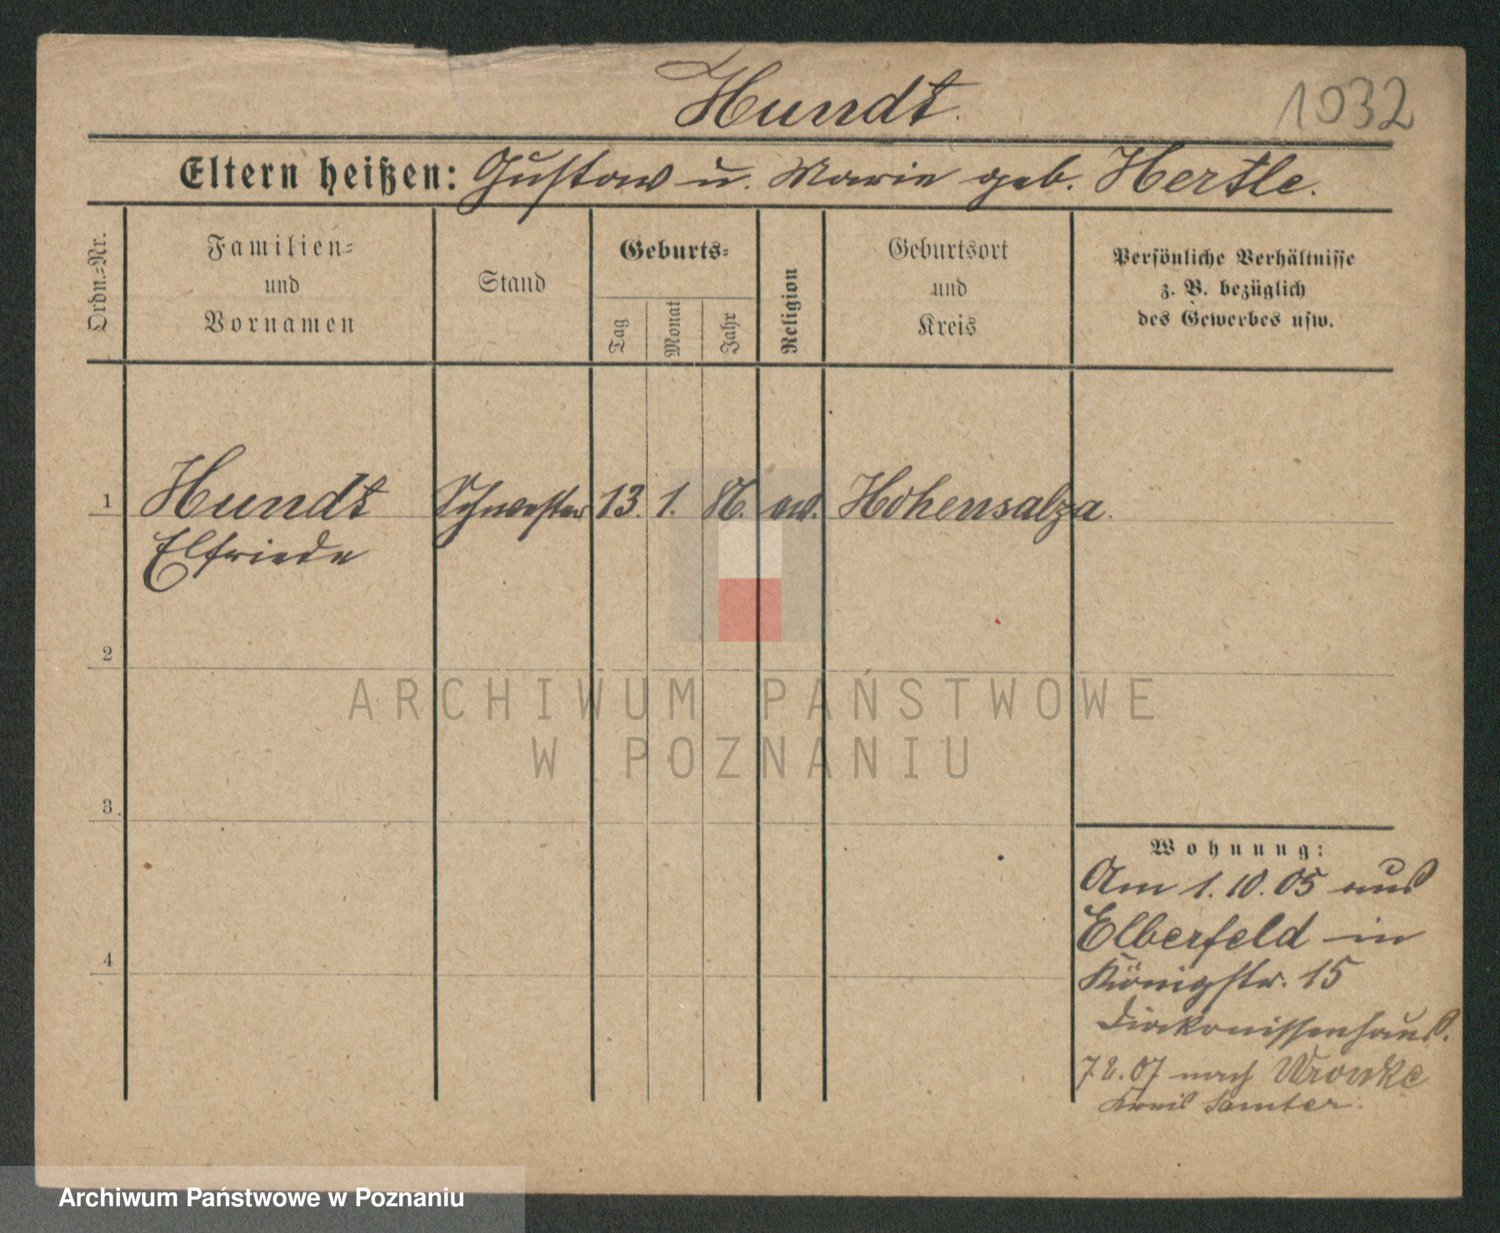 Hundt.
1032
Eltern heißen: Gustav u. Marie geb. Hertle.
Ordn.=Nr.
Familien=
und
Vornamen
Stand
Geburts=
Tag
Monat
Jahr
Religion
Geburtsort
und
Kreis
Persönliche Verhältnisse
z. B. bezüglich
des Gewerbes usw.
1 Hundt Schwester 13. 1. ev. Hohensalza.
Elfriede
2
3.
4
Wohnung:
Am 1.10.05 aus
Elberfeld in
Königstr. 15
Diakonissenhaus.
7.2.07 nach Wronke
Kreis Samter.
ARCHIWUM PAŃSTWOWE
W POZNANIU
Archiwum Państwowe w Poznaniu